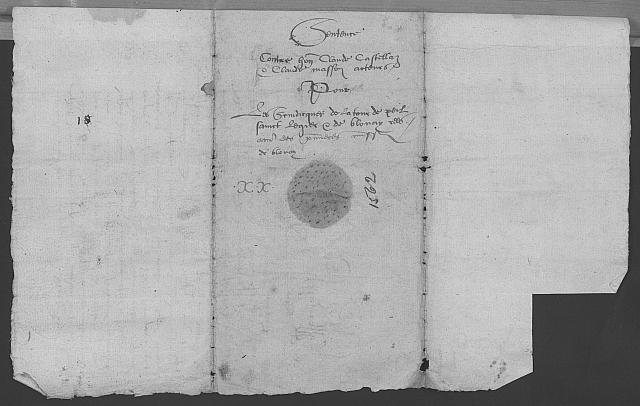 Sentence
Contre hon Claude Castellaz
& Claude masson acteurs
Pour
Les Scindicques de la tour de peil
sainct Legier & de blonay
des
de blonay
18
X X
1562